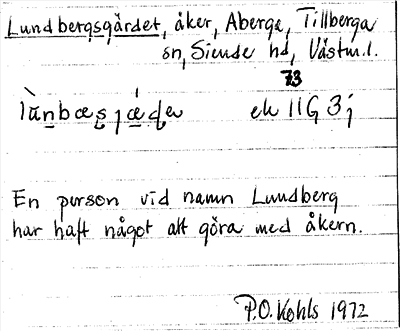 Lundbergsgärdet, åker, Aberga, Tillberga
sn, Siende hd, Västm.l.
73
ek 11G 3j
En person vid namn Lundberg
har haft något att göra med åkern.
P.O. Kohls 1972